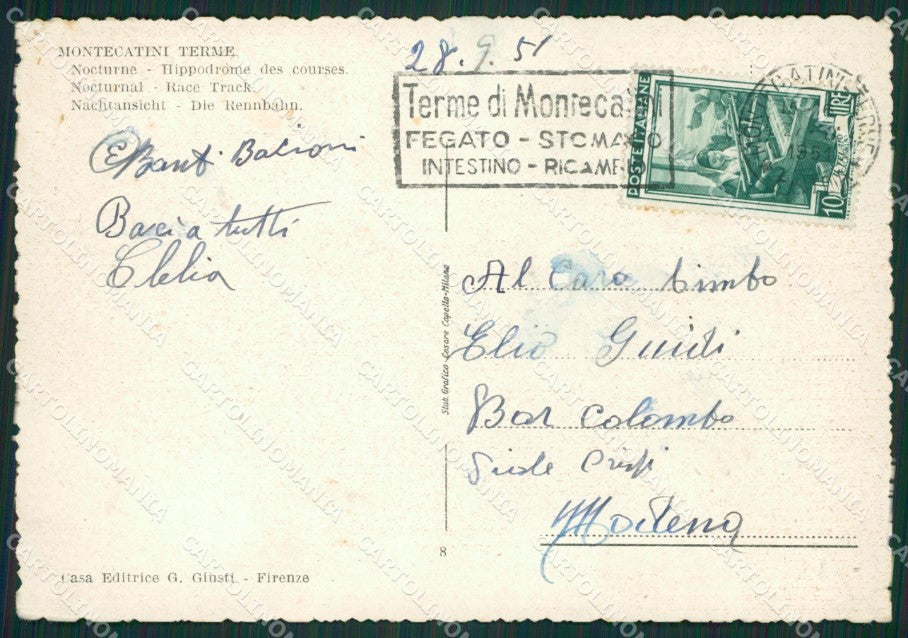 MONTECATINI TERME
Nocturne - Hippodrome des courses.
Nocturnal - Race Track.
Nachtansicht - Die Rennbahn.
28.9.51
Terme di Montecatini
FEGATO - STOMACO
INTESTINO - RICAMBIO
POSTE ITALIANE
LIRE
10
Baci a tutti
Clelia
Stab. Grafico Cesare Capello - Milano
Al Caro bimbo
Elio Guidi
Bar Colombo
Viale Crispi
Modena
8
Casa Editrice G. Giusti - Firenze
CARTOLINOMANIA